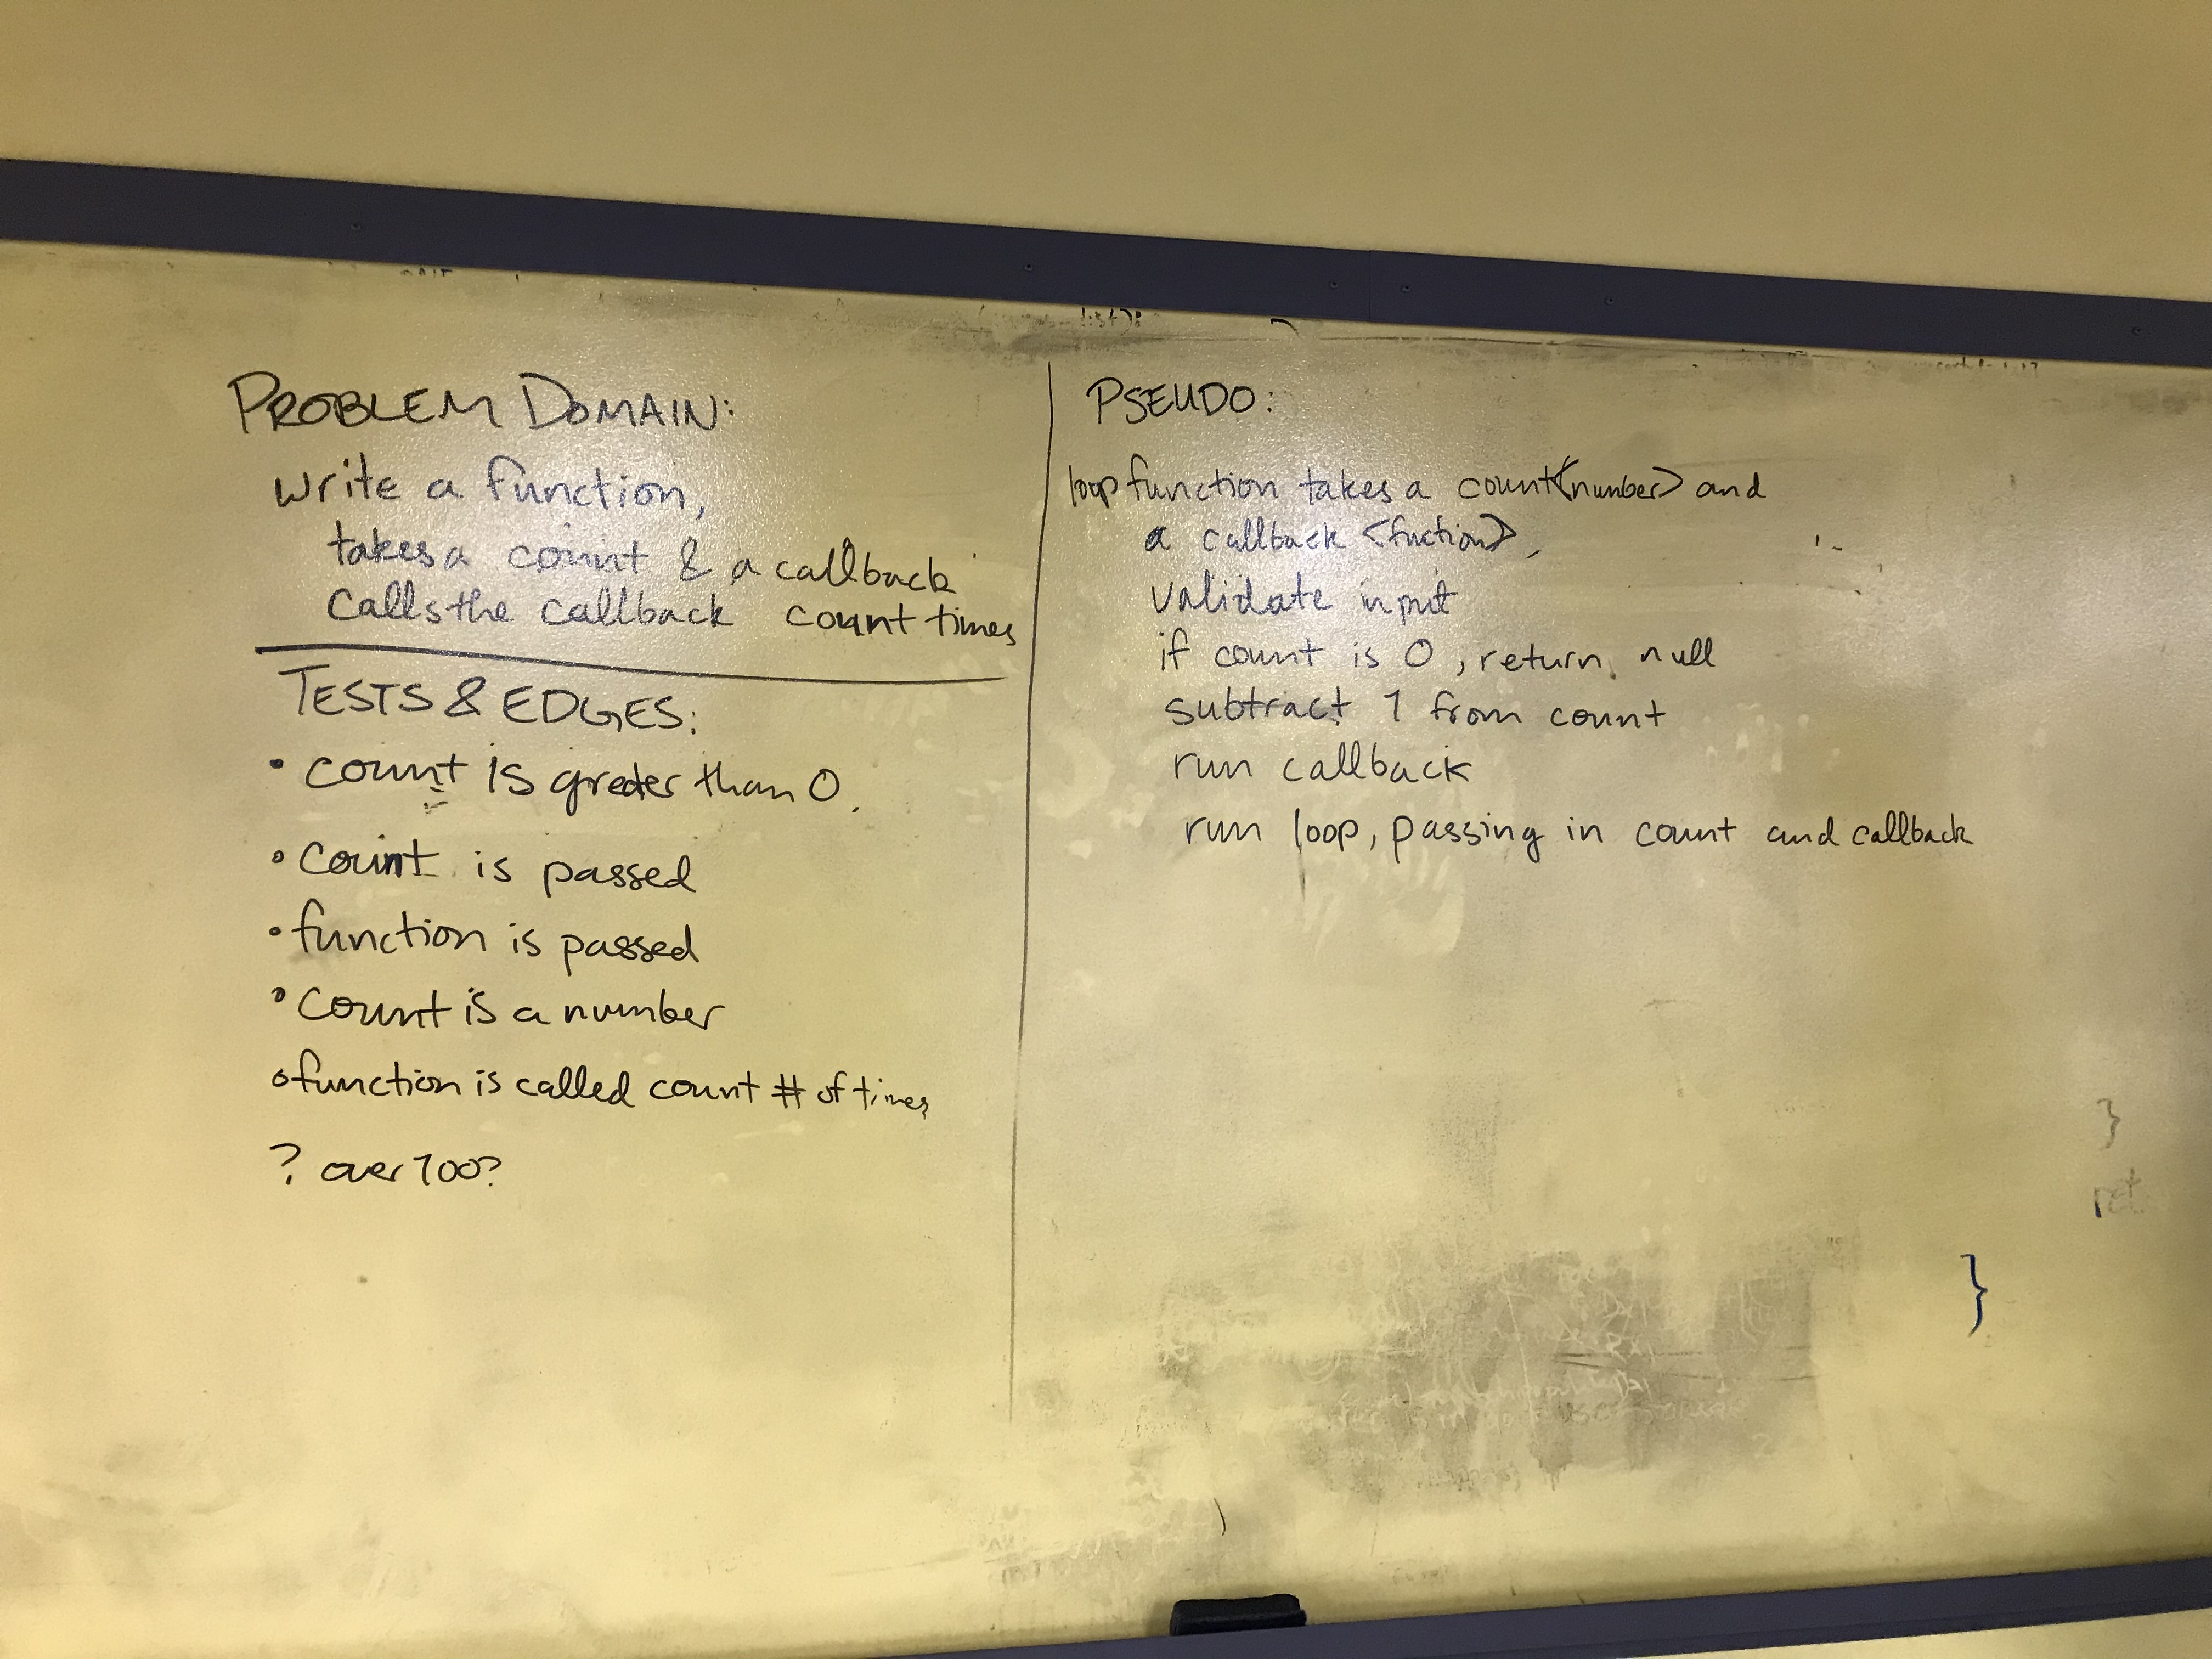 PROBLEM DOMAIN:
write a function,
takes a count & a callback
calls the callback count times
TESTS & EDGES:
• count is greter than 0.
• count is passed
• function is passed
• count is a number
• function is called count # of times
? over 100?
PSEUDO:
loop function takes a count <number> and
a callback <fuction>,
validate input
if count is 0, return null
subtract 1 from count
run callback
run loop, passing in count and callback
}
ret
}